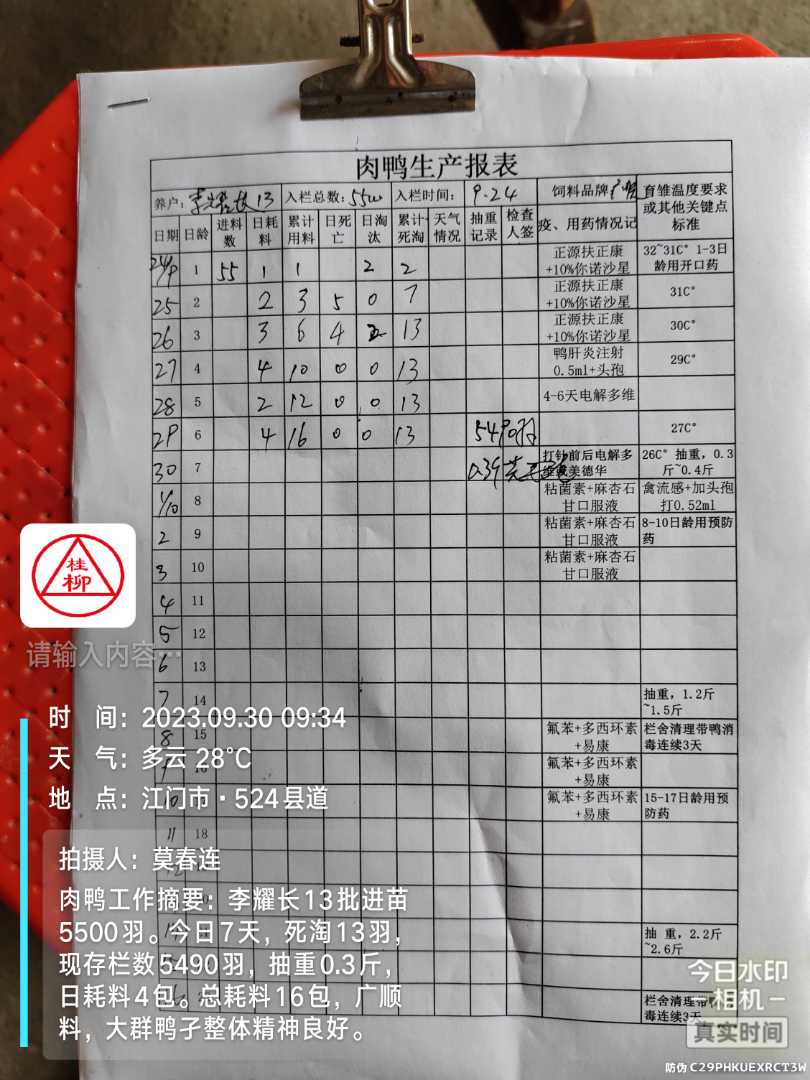 肉鸭生产报表
养户: 李耀长 13 入栏总数: 5500 入栏时间: 9.24 饲料品牌 广顺 育雏温度要求或其他关键点标准
日期 日龄 进料数 日耗料 累计用料 日死亡 日淘汰 累计死淘 天气情况 抽重记录 检查人签 疫、用药情况记
24/9 1 55 1 1 2 2 正源扶正康+10%你诺沙星 32~31C° 1-3日龄用开口药
25 2 2 3 5 0 7 正源扶正康+10%你诺沙星 31C°
26 3 3 6 4 2 13 正源扶正康+10%你诺沙星 30C°
27 4 4 10 0 0 13 鸭肝炎注射0.5ml+头孢 29C°
28 5 2 12 0 0 13 4-6天电解多维
29 6 4 16 0 0 13 5490羽 27C°
30 7 0.39 打针前后电解多 美德华 26C° 抽重，0.3斤~0.4斤
1/10 8 粘菌素+麻杏石甘口服液 禽流感+加头孢打0.52ml
2 9 粘菌素+麻杏石甘口服液 8-10日龄用预防药
3 10 粘菌素+麻杏石甘口服液
4 11
5 12
6 13
7 14 抽重，1.2斤~1.5斤
8 15 氟苯+多西环素+易康 栏舍清理带鸭消毒连续3天
9 16 氟苯+多西环素+易康
10 氟苯+多西环素+易康 15-17日龄用预防药
11 18
抽 重，2.2斤~2.6斤
栏舍清理带鸭消毒连续3天
桂柳
请输入内容…
时 间: 2023.09.30 09:34
天 气: 多云 28℃
地 点: 江门市·524县道
拍摄人: 莫春连
肉鸭工作摘要: 李耀长13批进苗
5500羽。今日7天，死淘13羽，
现存栏数5490羽，抽重0.3斤，
日耗料4包。总耗料16包，广顺
料，大群鸭孑整体精神良好。
今日水印
相机
真实时间
防伪 C29PHKUEXRCT3W